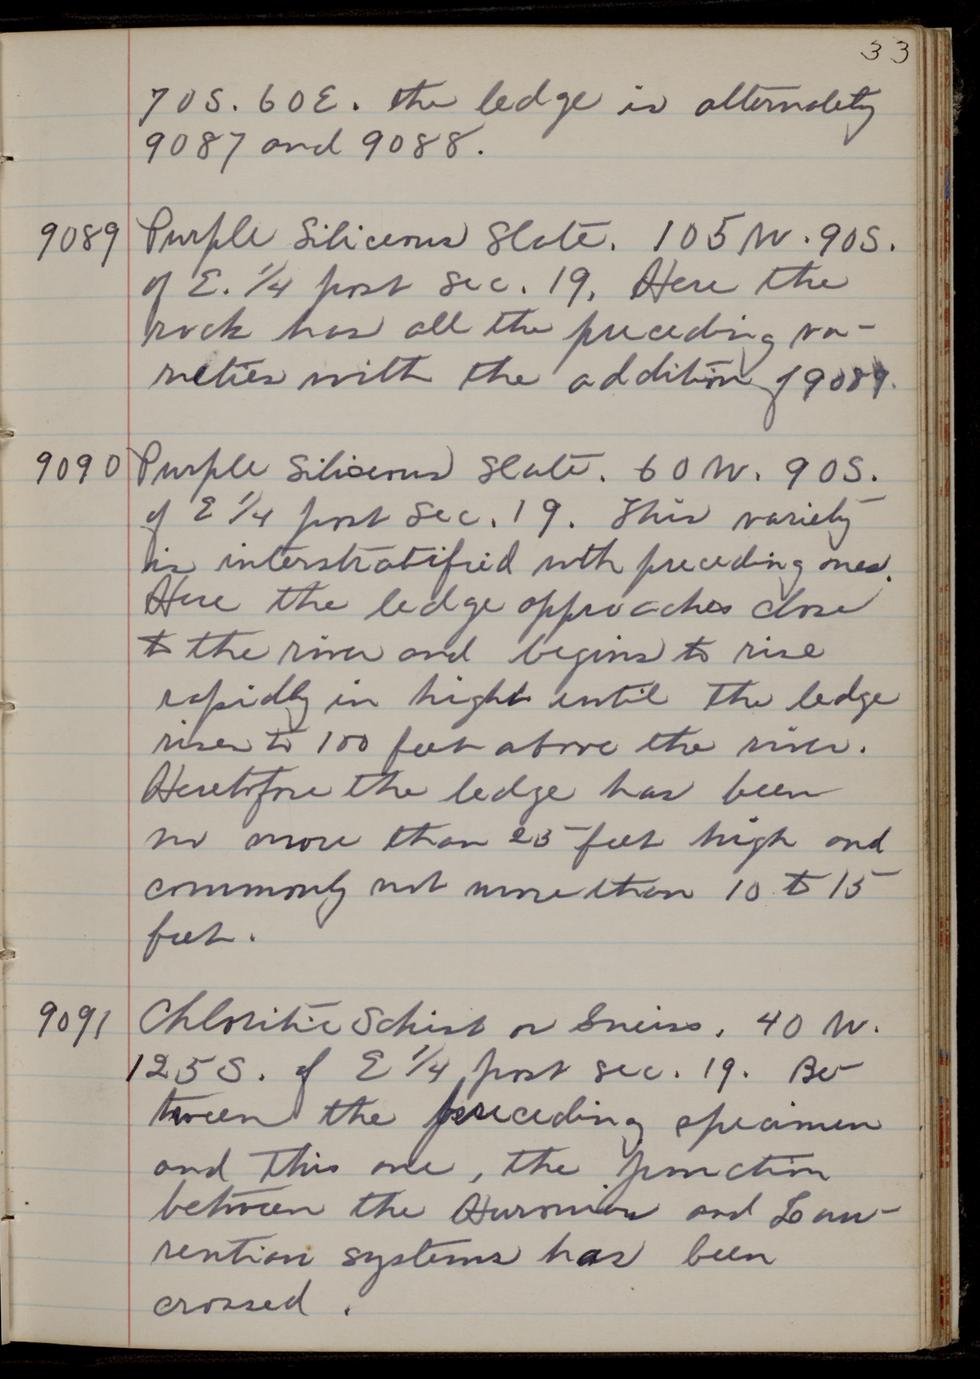 33
70S. 60E. the ledge is alternately
9087 and 9088.
9089 Purple Siliceous Slate. 105 W. 90S.
of E. 1/4 post Sec. 19. Here the
rock has all the preceding va-
rieties with the addition of 9089.
9090 Purple Siliceous Slate. 60 W. 90S.
of E 1/4 post Sec. 19. This variety
is interstratified with preceding ones.
Here the ledge approaches close
to the river and begins to rise
rapidly in hight until the ledge
rises to 100 feet above the river.
Heretofore the ledge has been
no more than 25 feet high and
commonly not more than 10 to 15
feet.
9091 Chloritic Schist or Gneiss. 40 W.
125 S. of E 1/4 post sec. 19. Be-
tween the preceding specimen
and this one, the junction
between the Huronian and Lau-
rentian systems has been
crossed.